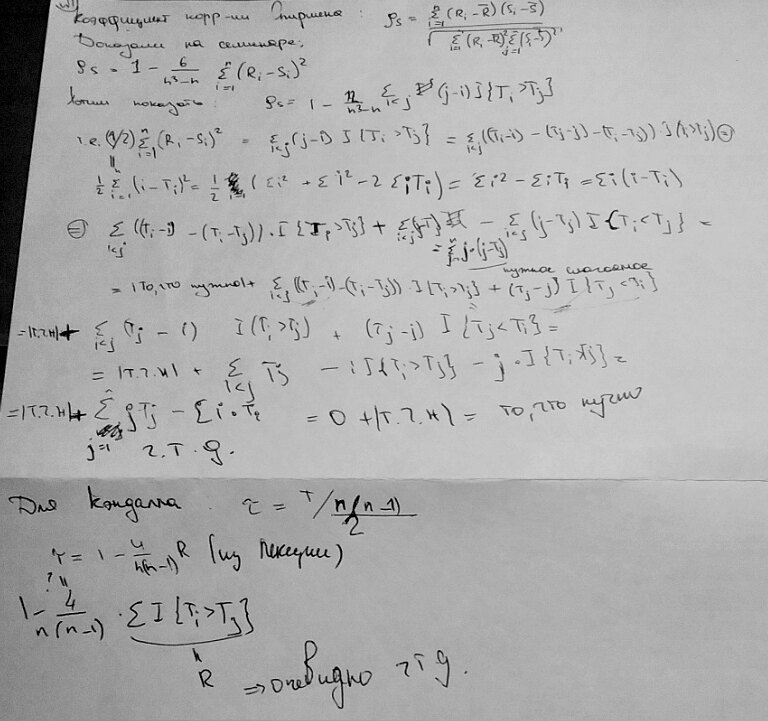 Коэффициент корр-ии Спирмена : ρs = Σ(Ri − R̄)(Si − S̄) / √(Σ(Ri − R̄)² Σ(Si − S̄)²)
Доказали на семинаре:
ρs = 1 − 6/(n³−n) Σ(Ri − Si)²
Хотим показать: ρs = 1 − 12/(n³−n) Σi<j (j−i) I{Ti > Tj}
т.е. (1/2) Σ(Ri − Si)² = Σi<j (j−i) I{Ti > Tj} = Σi<j ((Ti−i) − (Tj−j) − (Ti−Tj)) · I(Ti>Tj) ⊜
1/2 Σ(i − Ti)² = 1/2 (Σi² + Σi² − 2ΣiTi) = Σi² − ΣiTi = Σi(i − Ti)
⊜ Σi<j ((Ti−i) − (Ti−Tj)) · I{Ti > Tj} + − Σi<j (j−Tj) I{Ti < Tj} =
= Σ j·(j−Tj)
нужное слагаемое
= |то, что нужно| + Σi<j ((Ti−i) − (Ti−Tj)) · I{Ti>Tj} + (Tj−j) I{Tj<Ti}
=|т.ч.н|+ Σi<j (Tj − i) I(Ti>Tj) + (Tj−j) I{Tj<Ti} =
= |т.ч.н| + Σi<j Tj − i I{Ti>Tj} − j·I{Ti Tj} =
=|т.ч.н|+ Σj=1 jTj − Σi·Ti = 0 + |т.ч.н| = то, что нужно
ч.т.д.
Для Кэндалла. τ = T / n(n−1)/2
τ = 1 − 4/n(n−1) R (из лекции)
? ॥
1 − 4/n(n−1) · Σ I{Ti>Tj}
॥
R ⇒ очевидно чтд.